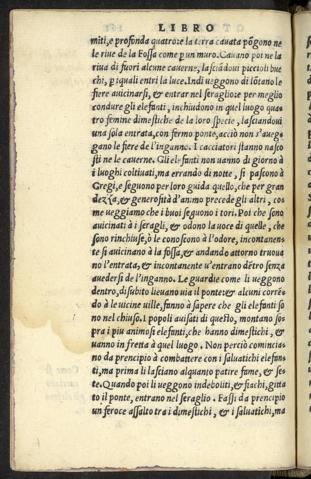 LIBRO
miti, e profonda quatro: e la terra cauata põgono ne
le riue de la Fossa come p un muro. Cauano poi ne la
riua di fuori alcune cauerne, lasciãdoui piccioli bu
chi, p iquali entri la luce. Indi ueggono di lõtano le
fiere auicinarsi, & entrar nel seraglio: e per meglio
condure gli elefanti, inchiudono in quel luogo qua=
tro femine dimestiche de la loro specie, lasciandoui
una sola entrata, con fermo ponte, acciò non s'aueg=
gano le fiere de l'inganno. I cacciatori stanno nasco
sti ne le cauerne. Gli elefanti non uanno di giorno à
i luoghi coltiuati, ma errando di notte, si pasono à
Gregi, e seguono per loro guida quello, che per gran
dezza, & generosità d'animo precede gli altri, co=
me ueggiamo che i buoi seguono i tori. Poi che sono
auicinati à i seragli, & odono la uoce di quelle, che
sono rinchiuse, ò le conoscono à l'odore, incontanen=
te si auicinano à la fossa, & andando attorno truoua
no l'entrata, & incontanente u'entrano dẽtro senza
auedersi de l'inganno. Le guardie come li ueggono
dentro, di subito lieuano uia il ponte: & alcuni corrẽ=
do à le uicine uille, fanno à sapere che gli elefanti so
no nel chiuso. I popoli auisati di questo, montano so=
pra i piu animosi elefanti, che hanno dimestichi, &
uanno in fretta à quel luogo. Non perciò comincia=
no da prencipio à combattere con i saluatichi elefan=
ti, ma prima li lasciano alquanto patire fame, & se=
te. Quando poi li ueggono indeboliti, & fiachi, gitta
to il ponte, entrano nel seraglio. Fassi da prencipio
un feroce assalto tra i dimestichi, & i saluatichi, ma